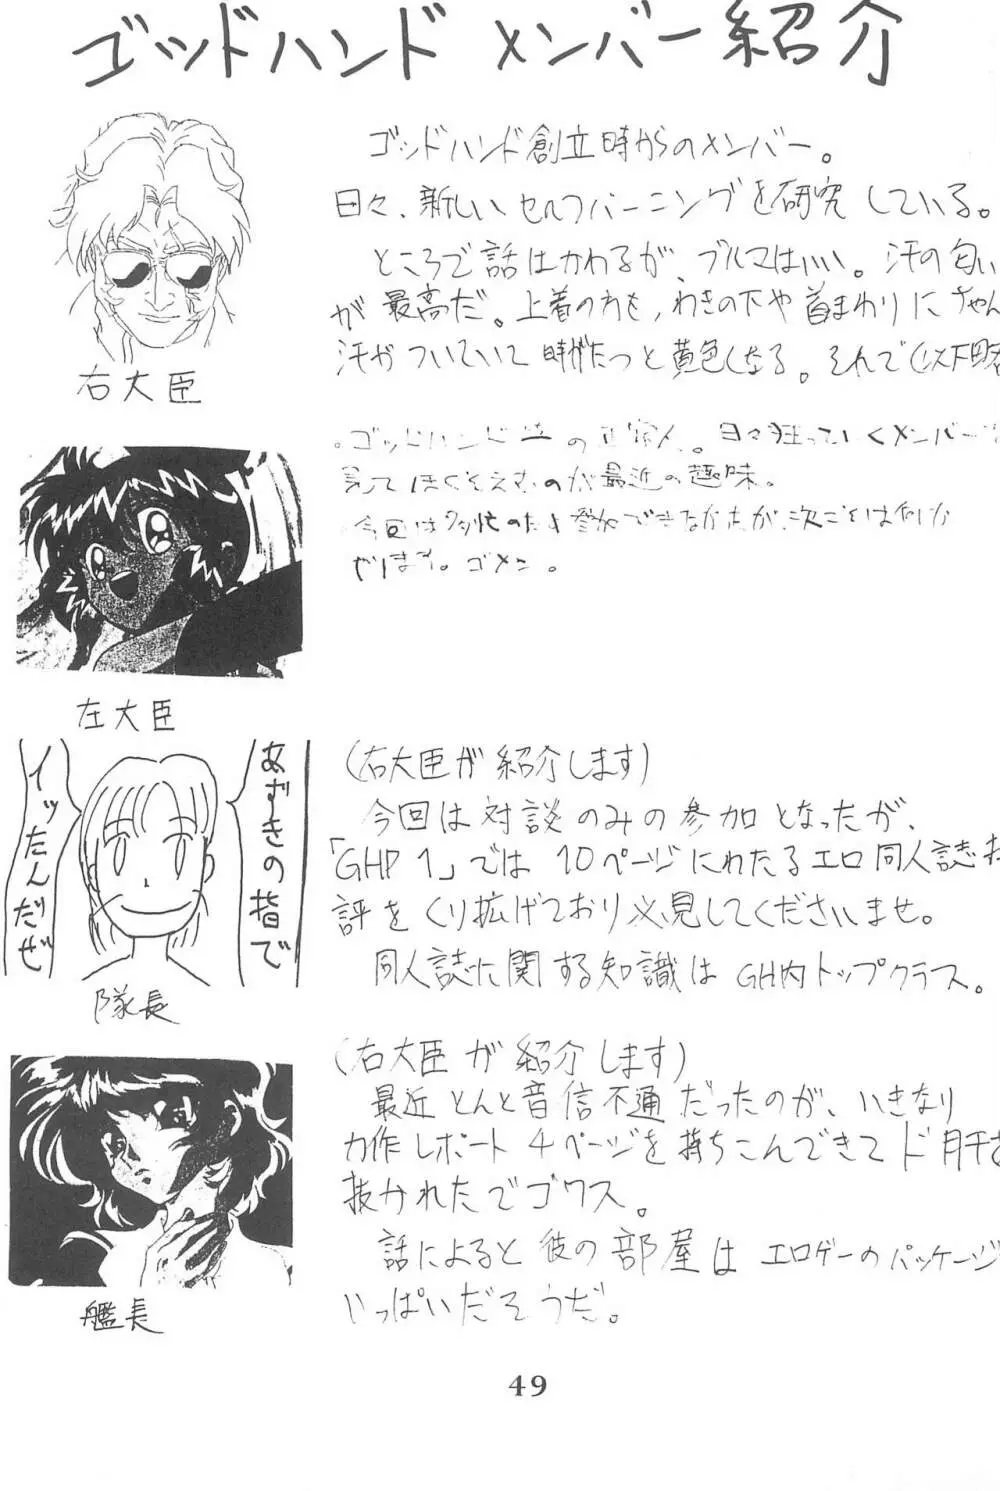 ゴッドハンド メンバー紹介
ゴッドハンド創立時からのメンバー。
日々、新しいセルフバーニングを研究している。
ところで話はかわるが、ブルマはいい。汗の匂い
が最高だ。上着の方も、わきの下や首まわりにちゃん
汗がついていて時がたつと黄色くなる。それで(以下略
右大臣
ゴッドハンド の 日々狂っていくメンバー
見てほくそえむのが最近の趣味。
今回は多忙のため参加できなかったが、次こそは何か
やります。ゴメン。
左大臣
あずきの指で
イッたんだぜ
隊長
(右大臣が紹介します)
今回は対談のみの参加となったが、
「GHP 1」では 10ページにわたるエロ同人誌
評をくり拡げており必見してくださいませ。
同人誌に関する知識はGH内トップクラス。
(右大臣が紹介します)
最近とんと音信不通だったのが、いきなり
力作レポート4ページを持ちこんできてド肝を
抜かれたでゴワス。
話によると彼の部屋はエロゲーのパッケージ
いっぱいだそうだ。
艦長
49